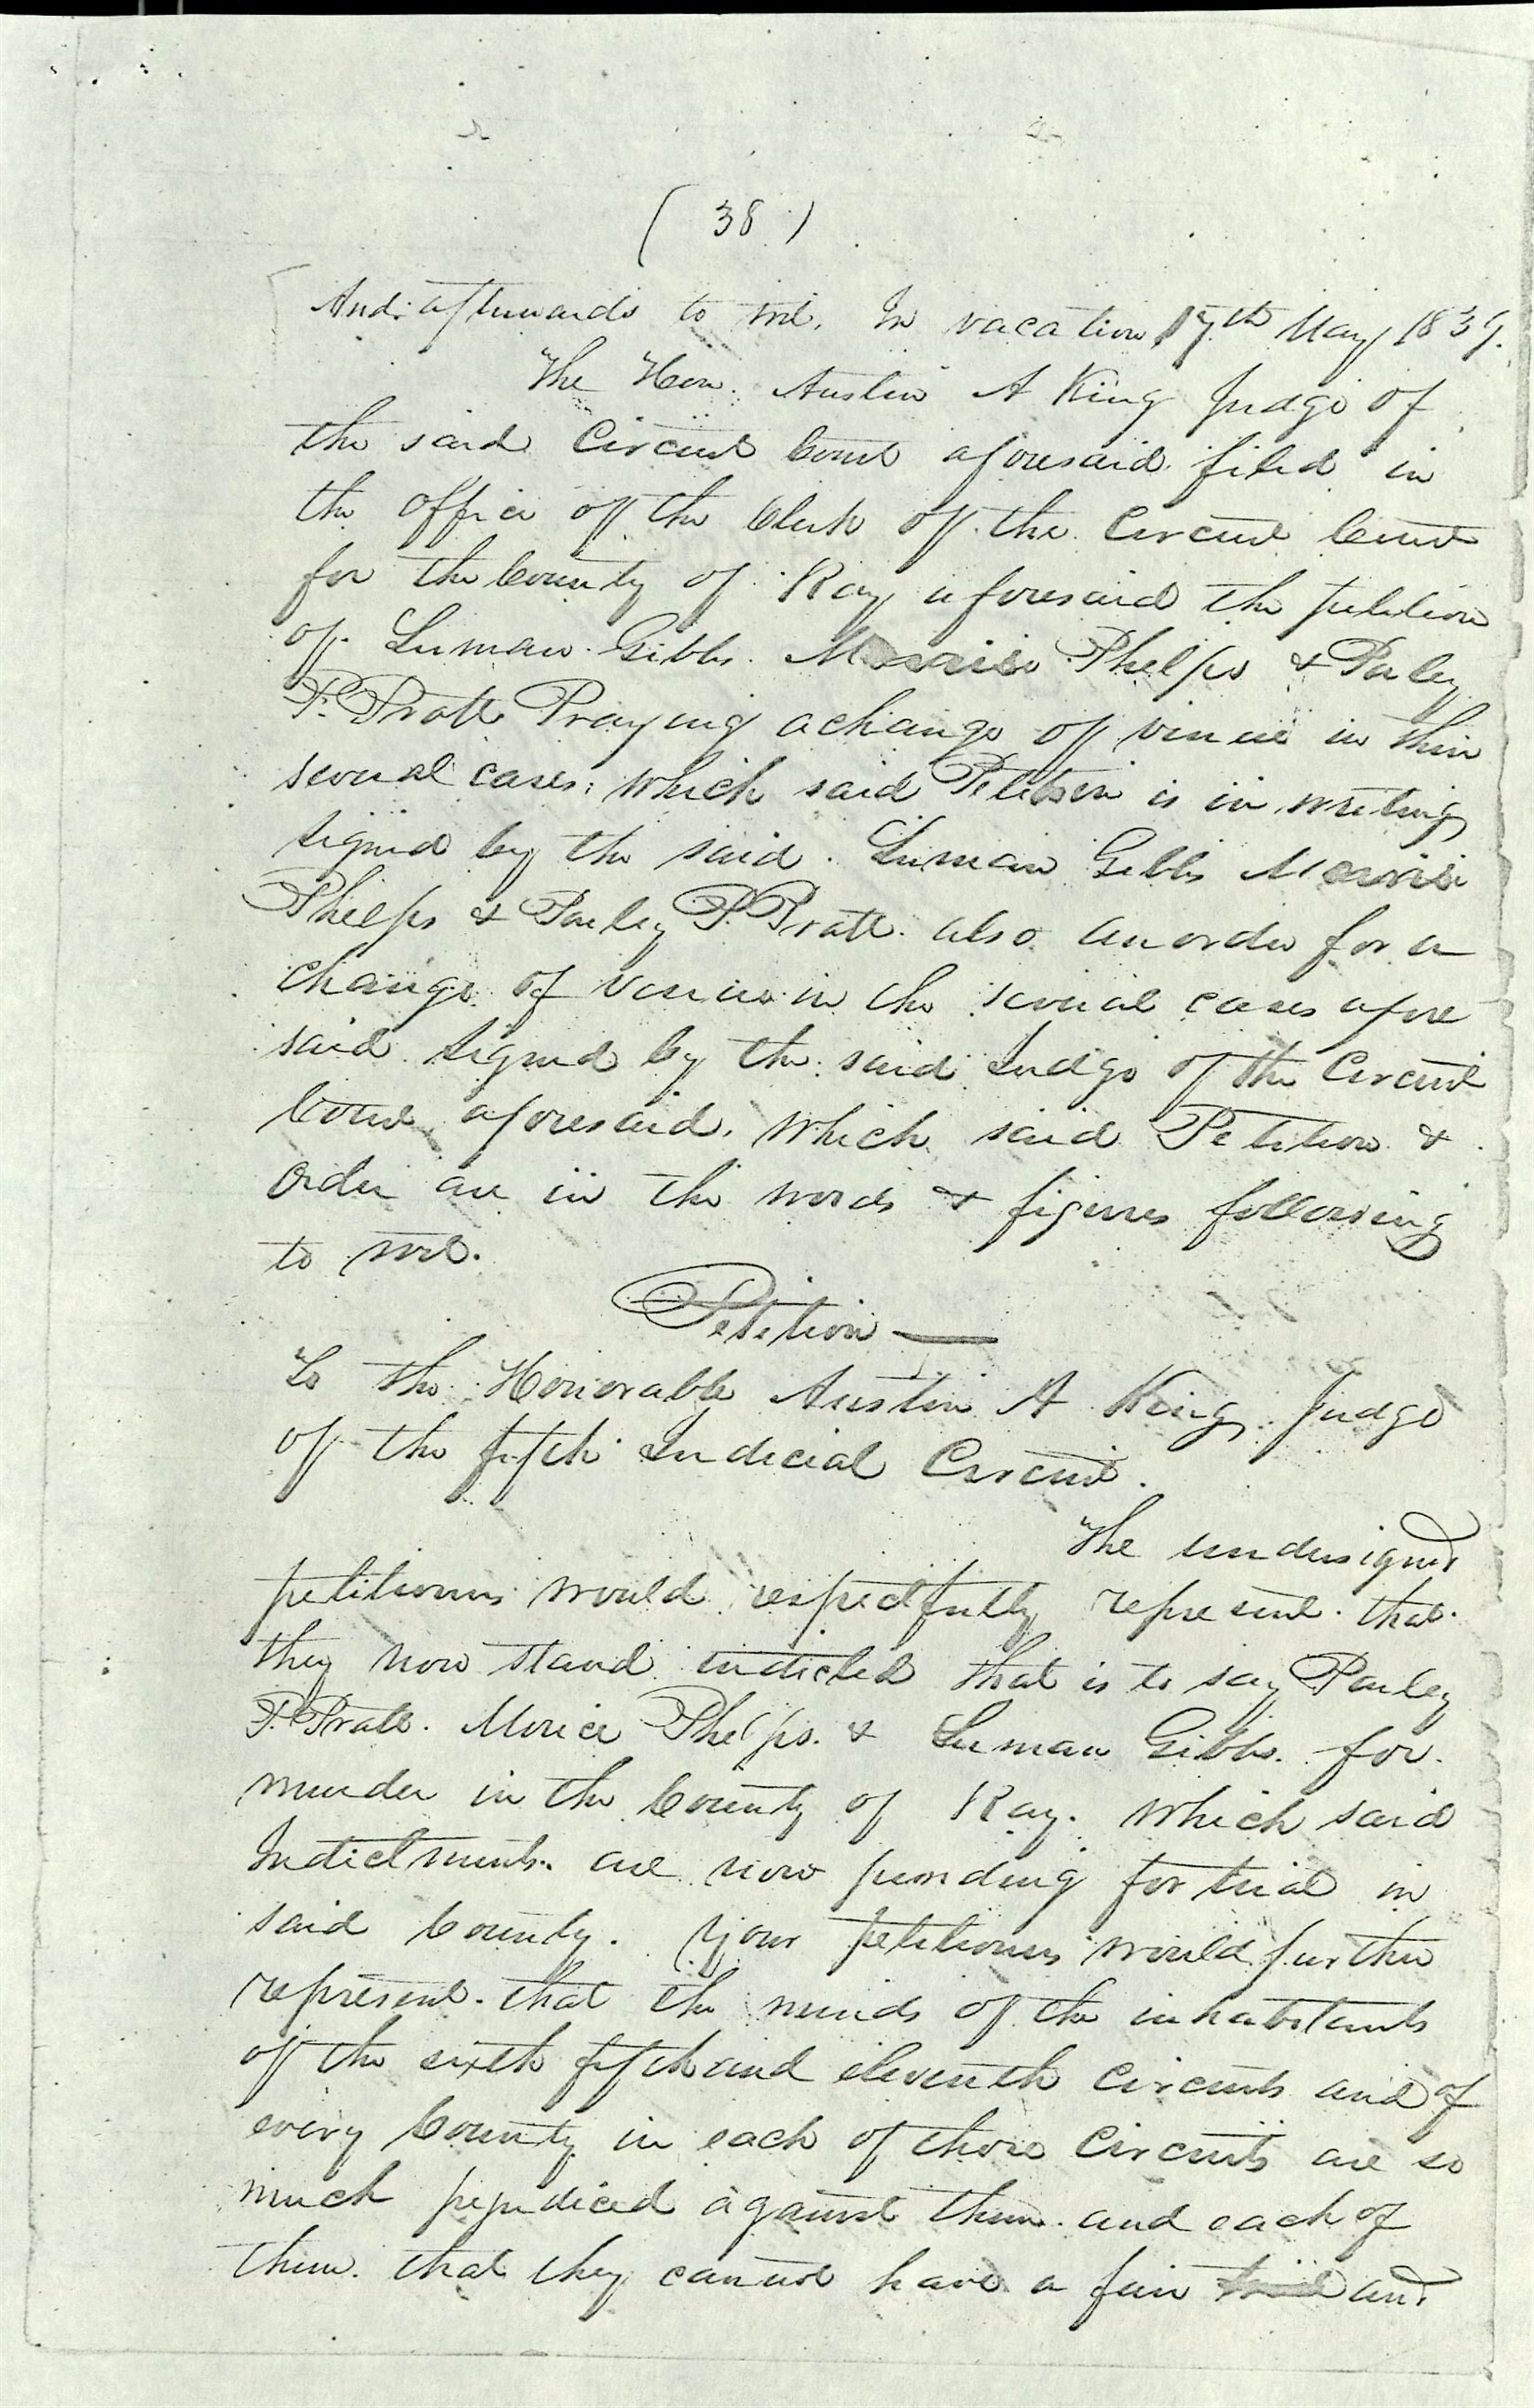 ( 38 )
And afterwards to wit. In vacation 17th May 1839.
The Hon. Austin A King Judge of
the said Circuit Court aforesaid filed in
the office of the Clerk of the Circuit Court
for the County of Ray aforesaid the petition
of Luman Gibbs. Morris Phelps & Parley
P. Pratt Praying a change of venue in their
several cases, which said Petition is in writing
signed by the said Luman Gibbs Morris
Phelps & Parley P. Pratt. also an order for a
change of venue in the several cases afore
said signed by the said Judge of the Circuit
Court aforesaid, which said Petition &
order are in the words & figures following
to wit.
Petition —
To the Honorable Austin A King Judge
of the fifth Judicial Circuit.
The undersigned
petitioners would respectfully represent that
they now stand indicted that is to say Parley
P. Pratt. Morice Phelps. & Luman Gibbs. for
murder in the County of Ray. which said
Indictments are now pending for trial in
said County. Your petitioners would further
represent that the minds of the inhabitants
of the sixth fifth and eleventh Circuits and of
every County in each of those Circuits are so
much prejudiced against them and each of
them that they cannot have a fair trial and